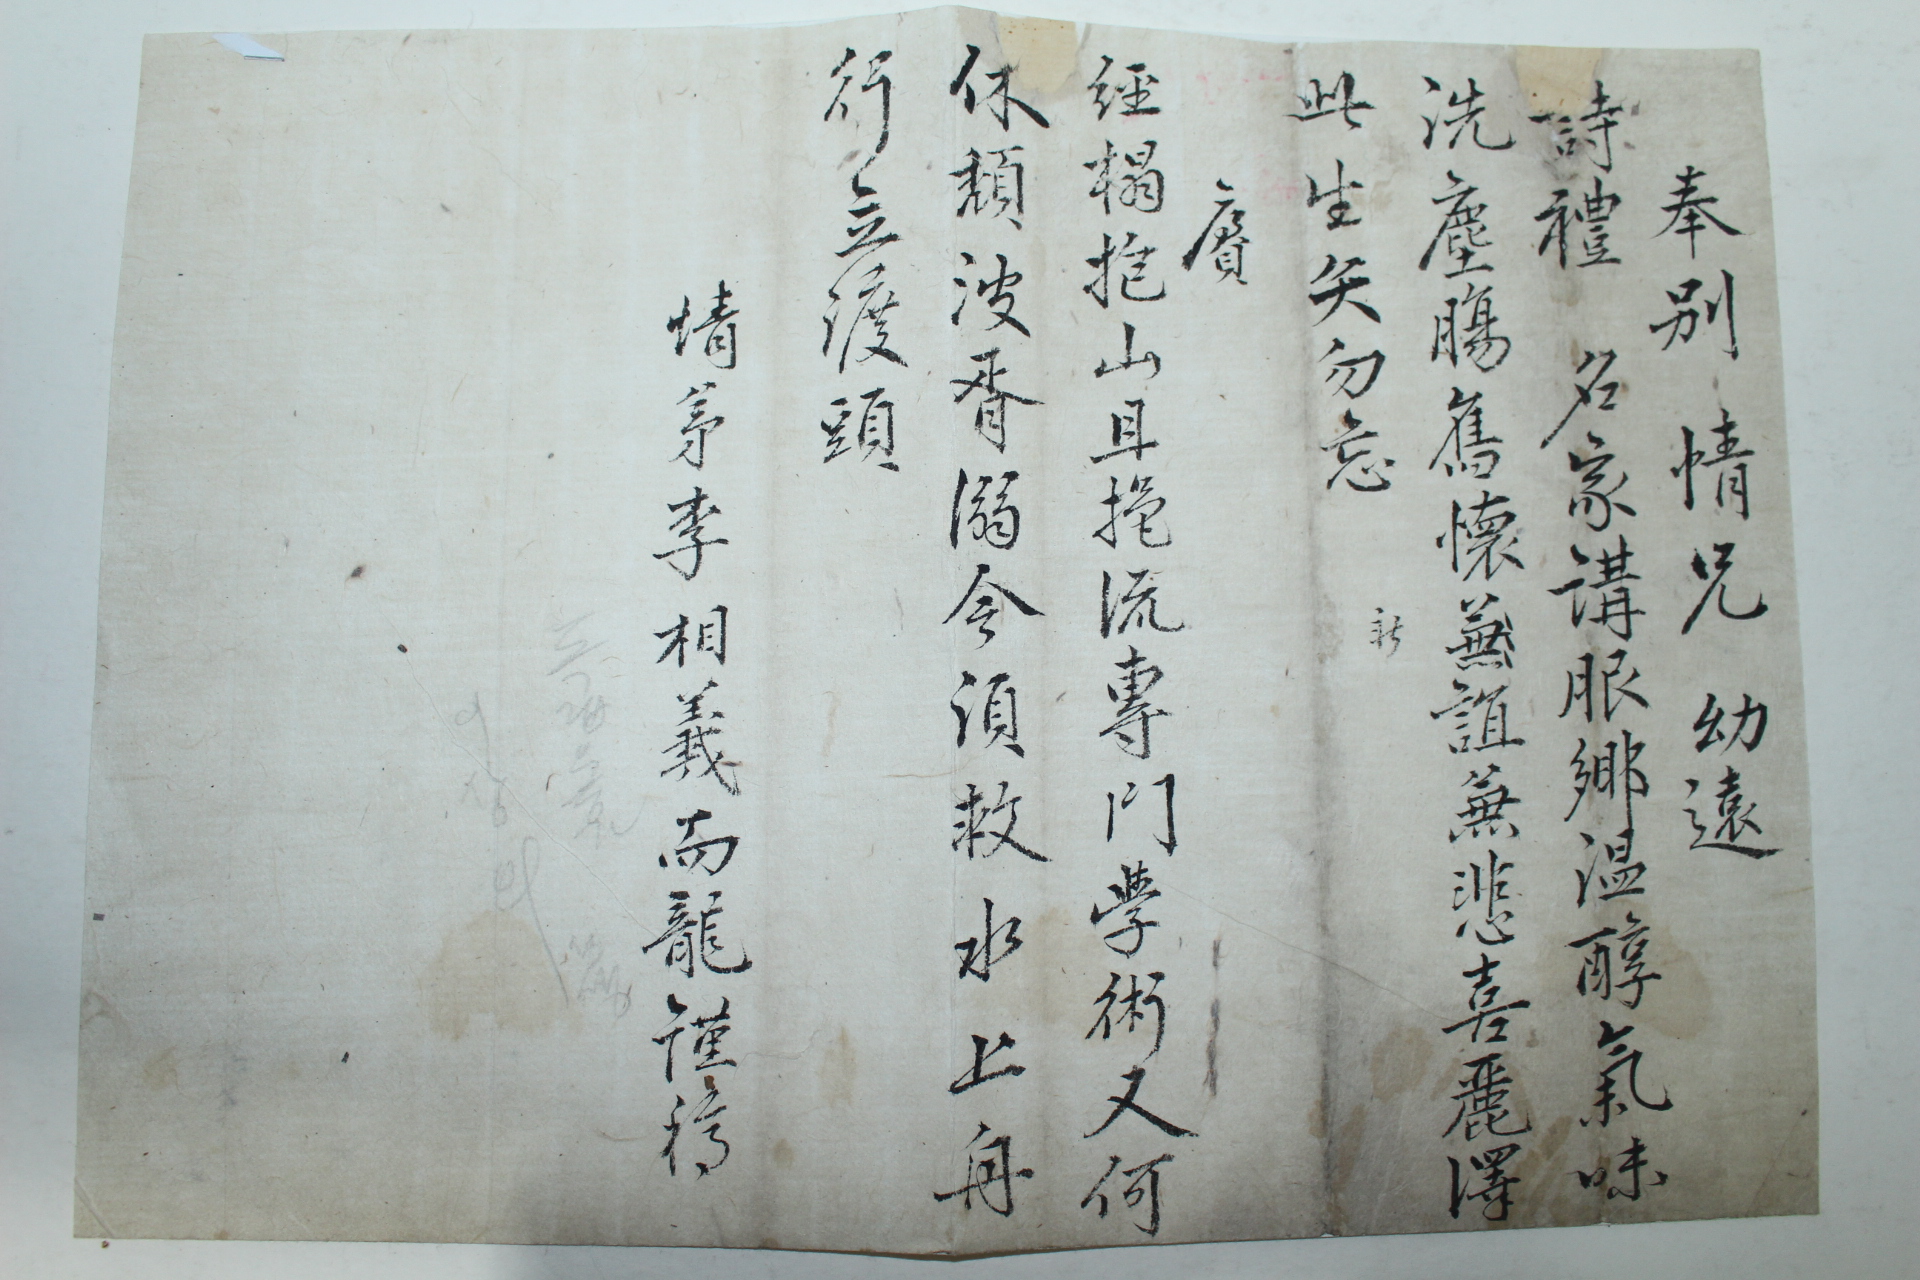 奉別 情兄 幼遠
詩禮 名家講服鄉溫醇氣味
洗塵腸舊懷兼誼兼悲喜麗澤
此生矢勿忘
新
賡
經榻抱山且挹流專門學術又何
休頹波胥溺今須救水上舟
行立渡頭
情弟李相義雨龍謹稿